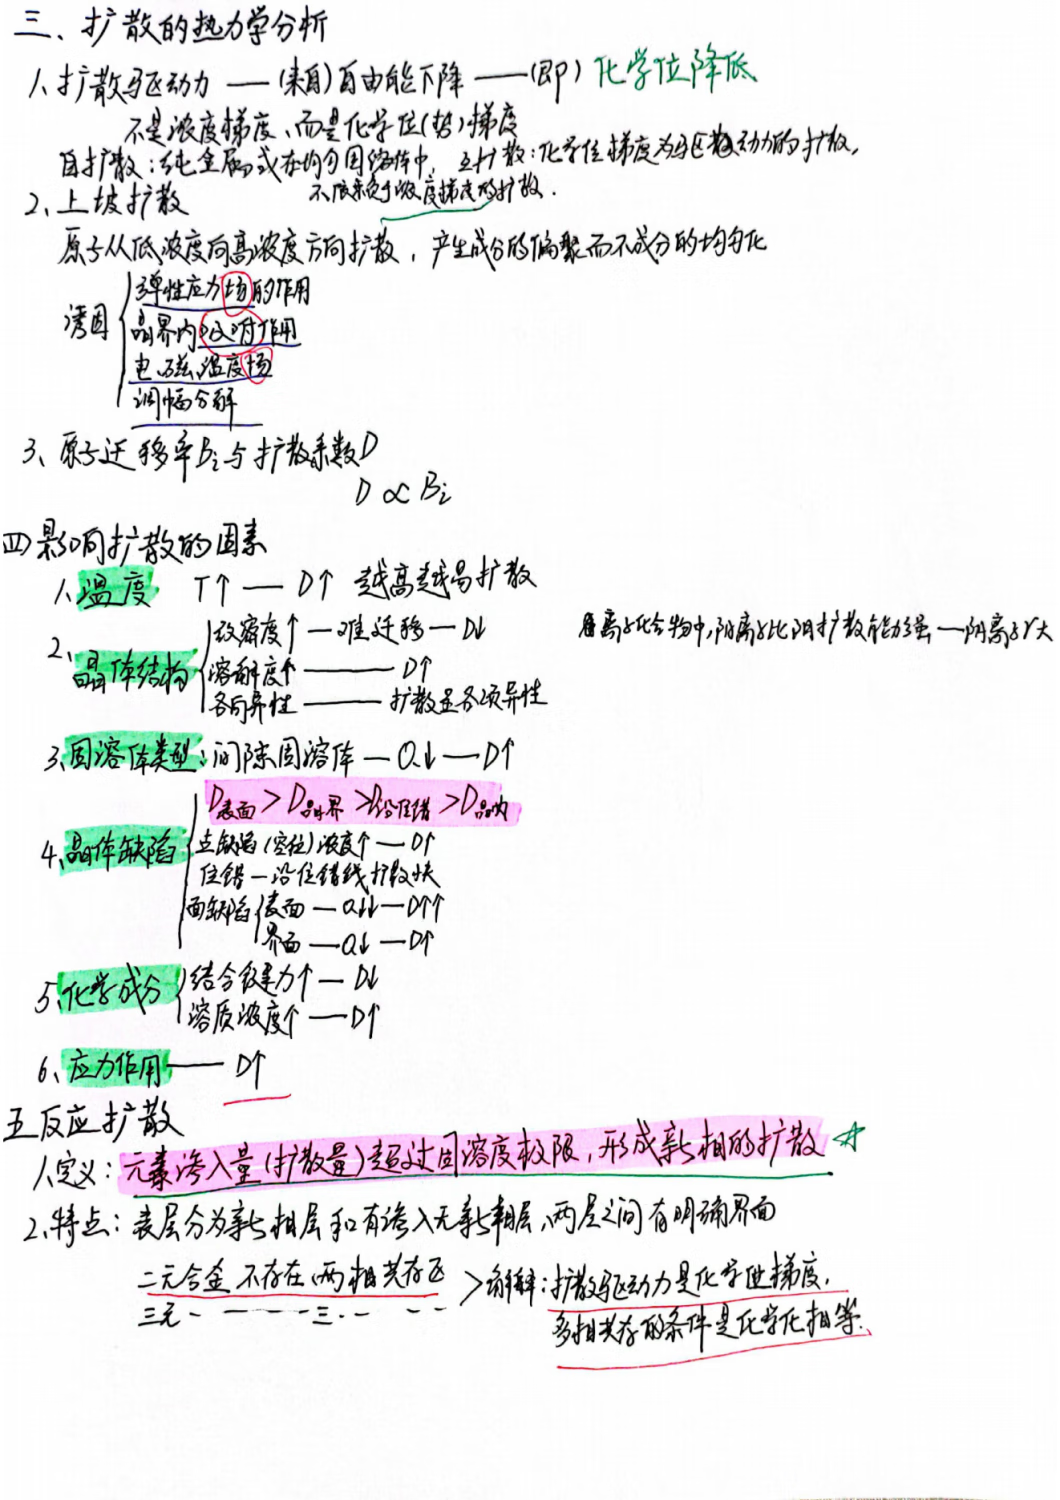 三、扩散的热力学分析
1、扩散驱动力 —— (来自)自由能下降 ——(即) 化学位降低
不是浓度梯度、而是化学位(势)梯度
自扩散:纯金属或在均匀固溶体中, 互扩散:化学位梯度为驱动力的扩散,
不依赖于浓度梯度的扩散.
2、上坡扩散
原子从低浓度向高浓度方向扩散, 产生成分的偏聚而不成分的均匀化
诱因
弹性应力场的作用
晶界内吸附作用
电、磁、温度场
调幅分解
3、原子迁移率Bi与扩散系数D
D ∝ Bi
四 影响扩散的因素
1、温度 T↑ — D↑ 越高越易扩散
2、晶体结构
致密度↑ — 难迁移 — D↓
离子化合物中,阳离子比阴扩散能力强 — 阴离子大
溶解度↑ —— D↑
各向异性 —— 扩散呈各项异性
3、固溶体类型:间隙固溶体 — Q↓ — D↑
4、晶体缺陷
D表面 > D晶界 > D沿位错 > D晶内
点缺陷(空位)浓度↑ — D↑
位错 — 沿位错线扩散快
面缺陷 表面 — Q↓↓ — D↑↑
界面 — Q↓ — D↑
5、化学成分
结合键力↑ — D↓
溶质浓度↑ — D↑
6、应力作用 —— D↑
五 反应扩散
1、定义:元素渗入量(扩散量)超过固溶度极限,形成新相的扩散 ☆
2、特点:表层分为新相层和有渗入无新相层、两层之间有明确界面
二元合金 不存在 两相共存区 > 解释:扩散驱动力是化学位梯度,
三元 - — — — 三 - - - -
多相共存的条件是化学化相等、